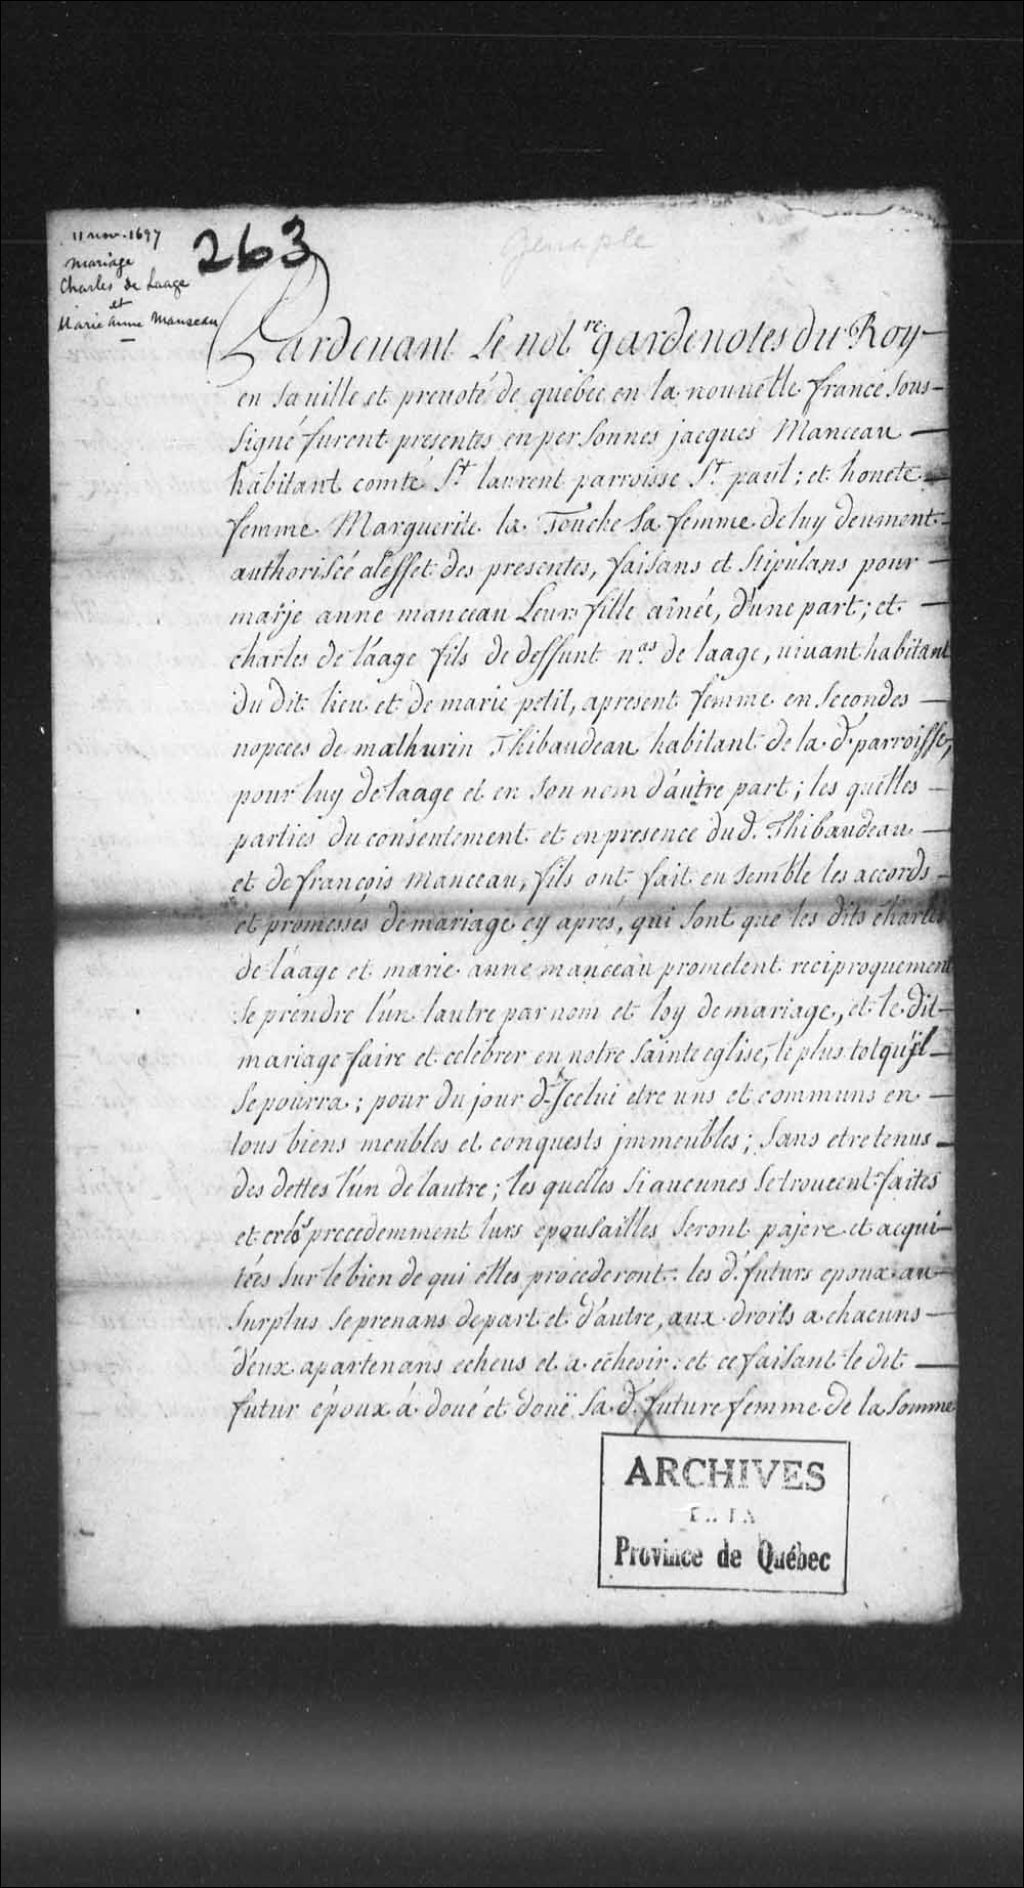 11 nov. 1697
mariage
Charles de Laage
et
Marie Anne Manseau
263
Genaple
Pardeuant Le not.re gardenotes du Roy
en sa uille et preuoté de quebec en la nouuelle france sous-
signé furent presentes en personnes jacques Manceau
habitant comté St laurent parroisse St paul; et honete
femme Marguerite la Touche sa femme de luy deument
authorisée alesffet des presentes, faisans et stipulans pour
marje anne manceau Leur fille ainée, d'une part; et
charles de láage fils de deffunt n.as de laage, uiuant habitant
du dit lieu et de marie petit, apresent femme en secondes
nopces de mathurin Thibaudeau habitant de la d. parroisse,
pour luy de laage et en son nom d'autre part; les quelles
parties du consentement et en presence du d. Thibaudeau
et de françois manceau, fils ont fait en semble les accords
et promesses de mariage cy aprés, qui sont que les dits charles
de láage et marie anne manceau prometent reciproquement
se prendre l'un lautre par nom et loy de mariage, et le dit
mariage faire et celebrer en notre sainte eglise, le plus tot qu'jl
se pourra; pour du jour d'Jcelui etre uns et communs en
tous biens meubles et conquests jmmeubles; sans etre tenus
des dettes l'un de lautre; les quelles si aucunes se trouuent faites
et precedemment lurs epousailles seront pajere et acqui-
tées sur le bien de qui elles procederont. les d. futurs epoux au
surplus se prenans de part et d'autre, aux droits a chacuns
d'eux apartenans echeus et a echeoir: et ce faisant le dit
futur époux á doué et doüe sa d. future femme de la somme
ARCHIVES
DE LA
Province de Québec